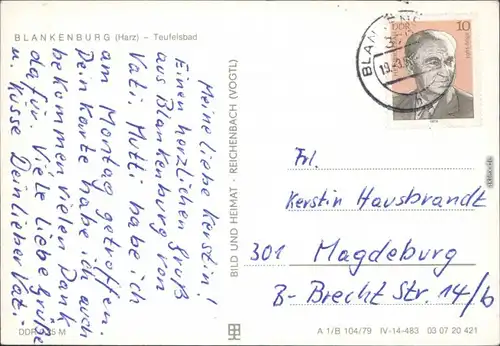 BLANKENBURG (Harz) – Teufelsbad
Meine liebe Kerstin!
Einen herzlichen Gruß
aus Blankenburg von
Vati. Mutti habe ich
am Montag getroffen.
Deine Karte habe ich auch
bekommen vielen Dank
dafür. Viele liebe Grüße
u. Küsse Dein lieber Vati.
DDR
M
BILD UND HEIMAT · REICHENBACH (VOGTL)
10
DDR
BLANKENBURG
19.-3.
Frl.
Kerstin Hausbrandt
301 Magdeburg
B-Brecht Str. 14/b
A 1/B 104/79 IV-14-483 03 07 20 421